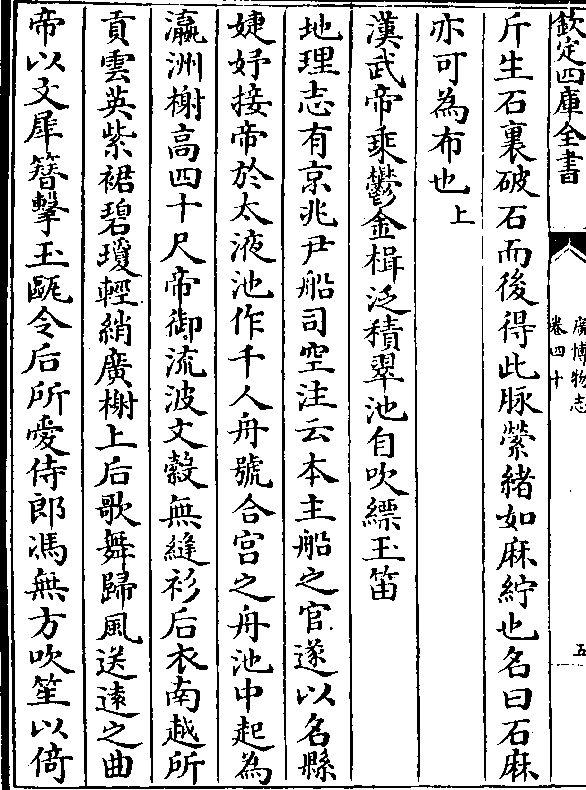 欽定四庫全書
廣博物志
卷四十
五
斤生石裏破石而後得此脉縈緒如麻紵也名曰石麻
亦可為布也上
漢武帝乘鬱金楫泛積翠池自吹縹玉笛
地理志有京兆尹船司空注云本主船之官遂以名縣
婕妤接帝於太液池作千人舟號合宫之舟池中起為
瀛洲榭髙四十尺帝御流波文縠無縫衫后衣南越所
貢雲英紫裙碧瓊輕綃廣榭上后歌舞歸風送逺之曲
帝以文犀簪擊玉甌令后所愛侍郎馮無方吹笙以倚